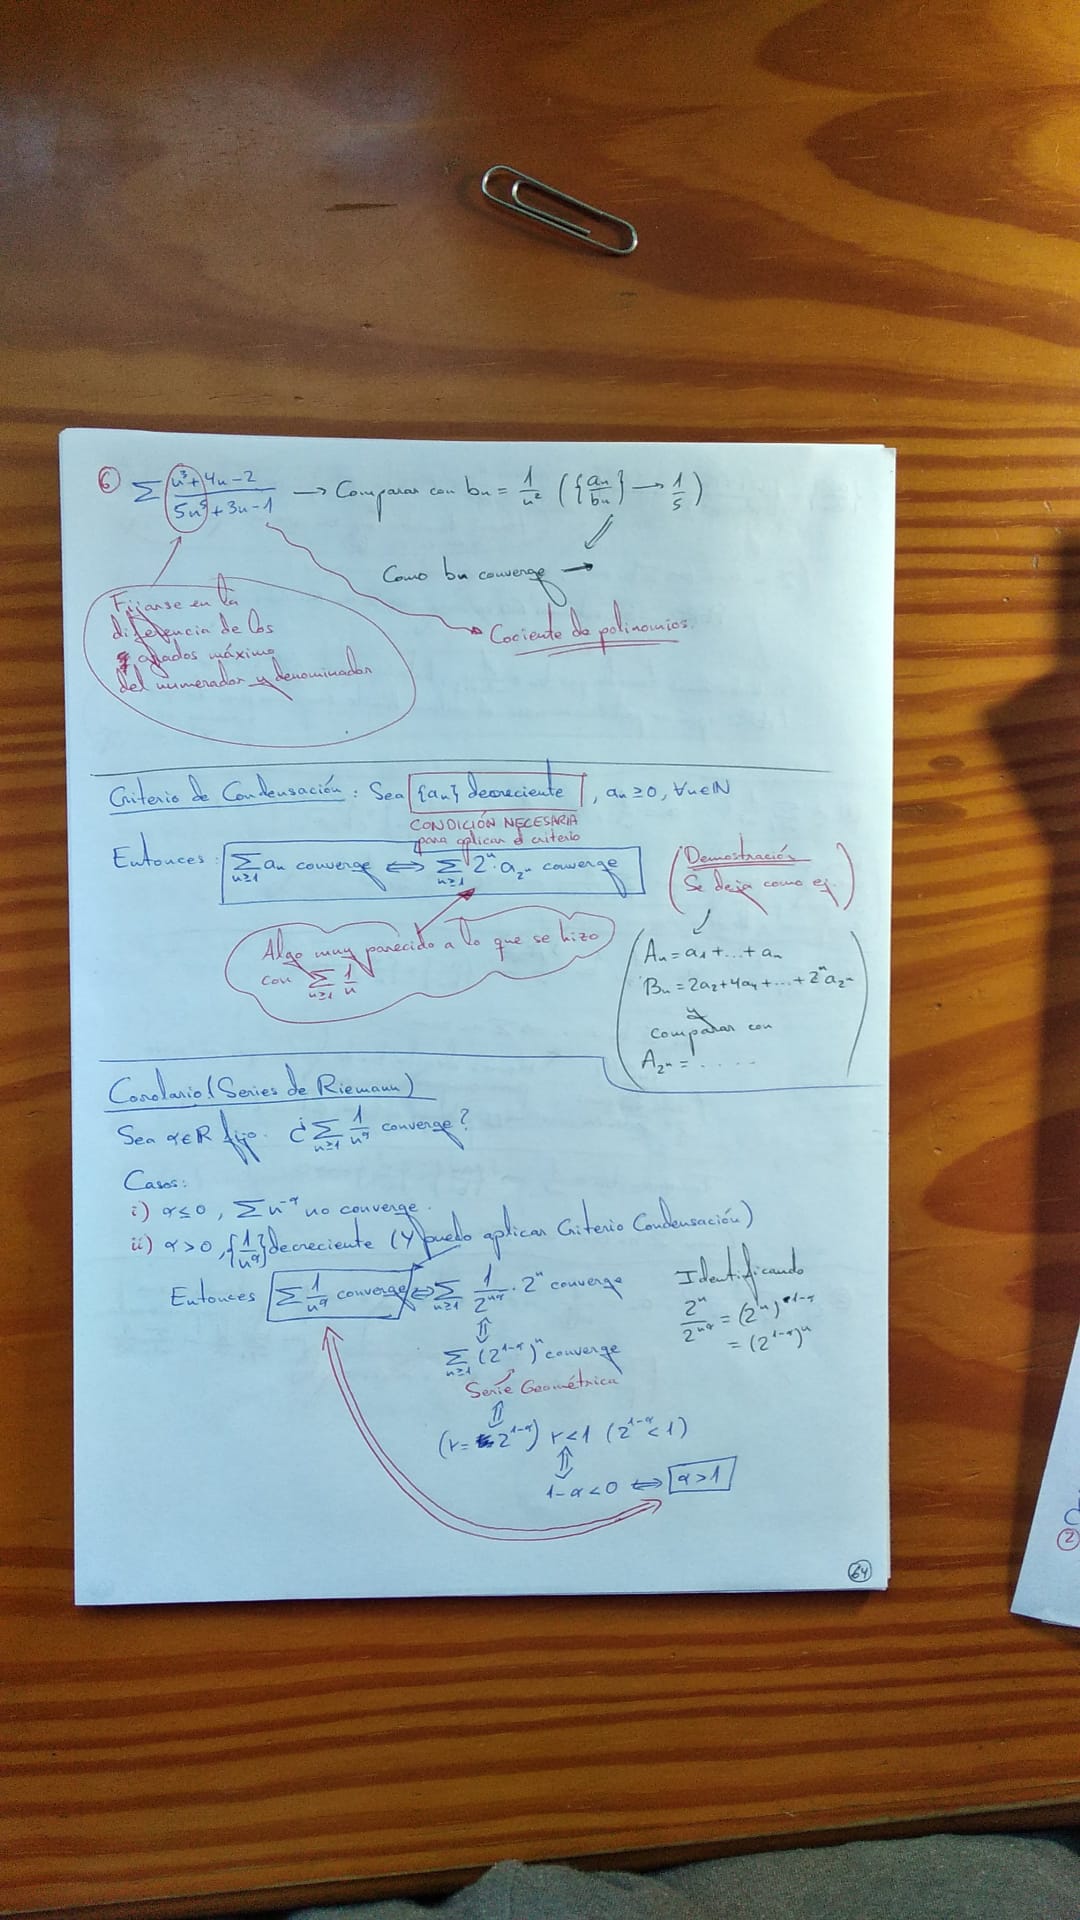 6 ∑ (n³+4n-2)/(5n⁵+3n-1) → Comparar con bn = 1/n² ({an/bn} → 1/5)
Como bn converge →
Fijarse en la
diferencia de los
grados máximo
del numerador y denominador
Cociente de polinomios.
Criterio de Condensación: Sea {an} decreciente, an ≥ 0, ∀n∈ℕ
CONDICIÓN NECESARIA
para aplicar el criterio
Entonces: ∑n≥1 an converge ⟺ ∑n≥1 2ⁿ·a₂ⁿ converge
(Demostración
Se deja como ej.)
Algo muy parecido a lo que se hizo
con ∑n≥1 1/n
(An = a1+...+an
Bn = 2a2+4a4+...+2ⁿa₂ⁿ
y
comparar con
A₂ⁿ = .....)
Corolario (Series de Riemann)
Sea α∈R fijo. ¿∑n≥1 1/n^α converge?
Casos:
i) α≤0, ∑n^-α no converge.
ii) α>0, {1/n^α} decreciente (Y puedo aplicar Criterio Condensación)
Entonces ∑ 1/n^α converge ⟺ ∑n≥1 1/2^nα · 2ⁿ converge
Identificando
2ⁿ/2^nα = (2ⁿ)^1-α
= (2^1-α)ⁿ
⇕
∑n≥1 (2^1-α)ⁿ converge
Serie Geométrica
⇕
(r = 2^1-α) r<1 (2^1-α<1)
⇕
1-α<0 ⟺ α>1
64
2